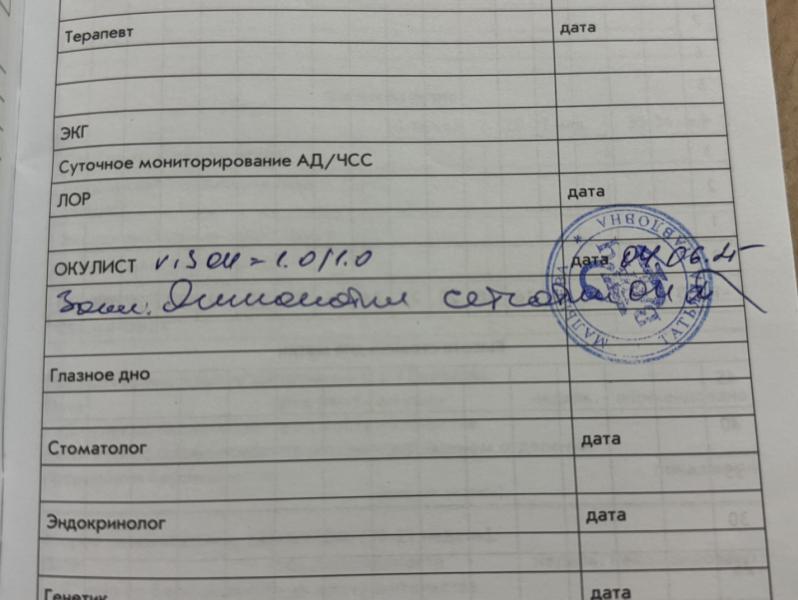 Терапевт дата
ЭКГ
Суточное мониторирование АД/ЧСС
ЛОР дата
ОКУЛИСТ Vis OU = 1.0/1.0 дата 04.06.
Закл: Ангиопатия сетчатки OU
МАЛЬ ТАТЬЯ ПАВЛОВНА
Глазное дно
Стоматолог дата
Эндокринолог дата
Генетик дата